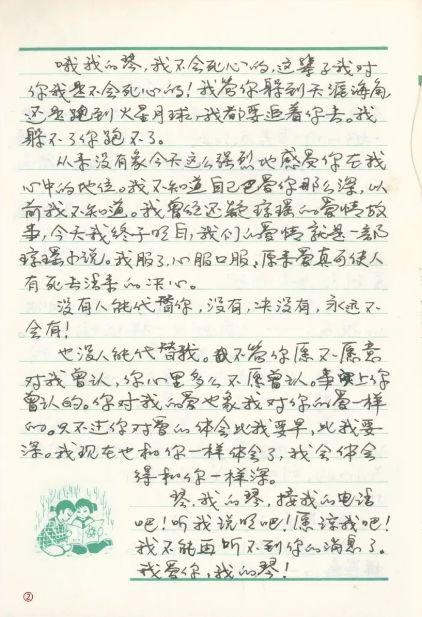 哦我的琴，我不会死心的，这辈子我对
你我是不会死心的！我管你躲到天涯海角
还是跑到火星月球，我都要追着你去。我
躲不了你跑不了。
从来没有象今天这么强烈地感受你在我
心中的地位。我不知道自己已爱你那么深，以
前我不知道。我曾经还疑琼瑶的爱情故
事，今天我终于明白，我们的爱情就是一部
琼瑶小说。我服了，心服口服，原来爱真可使人
有死去活来的决心。
没有人能代替你，没有，决没有，永远不
会有！
也没人能代替我。我不管你愿不愿意
对我曾认，你心里多么不愿曾认。事实上你
曾认的。你对我的爱也象我对你的爱一样
的。只不过你对爱的体会比我要早，比我要
深。我现在也和你一样体会了，我会体会
得和你一样深。
琴，我的琴，接我的电话
吧！听我说明吧！原谅我吧！
我不能再听不到你的消息了。
我爱你，我的琴！
②